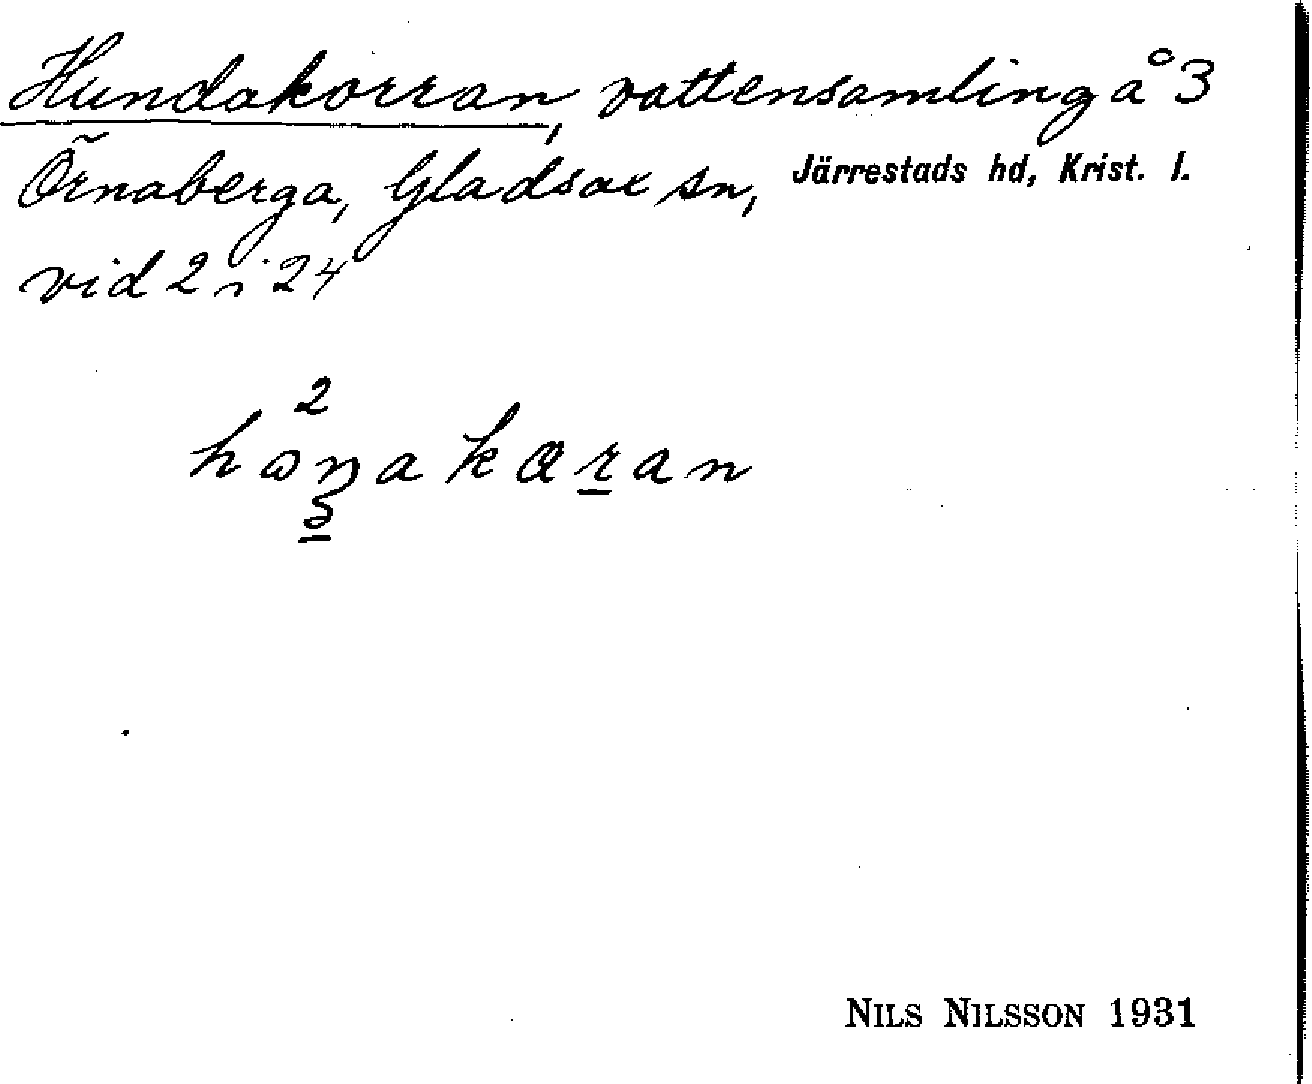 Hundakorran, vattensamling å 3
Örnaberga, Gladsax sn, Järrestads hd, Krist. l.
vid 2 i 24
2
NILS NILSSON 1931